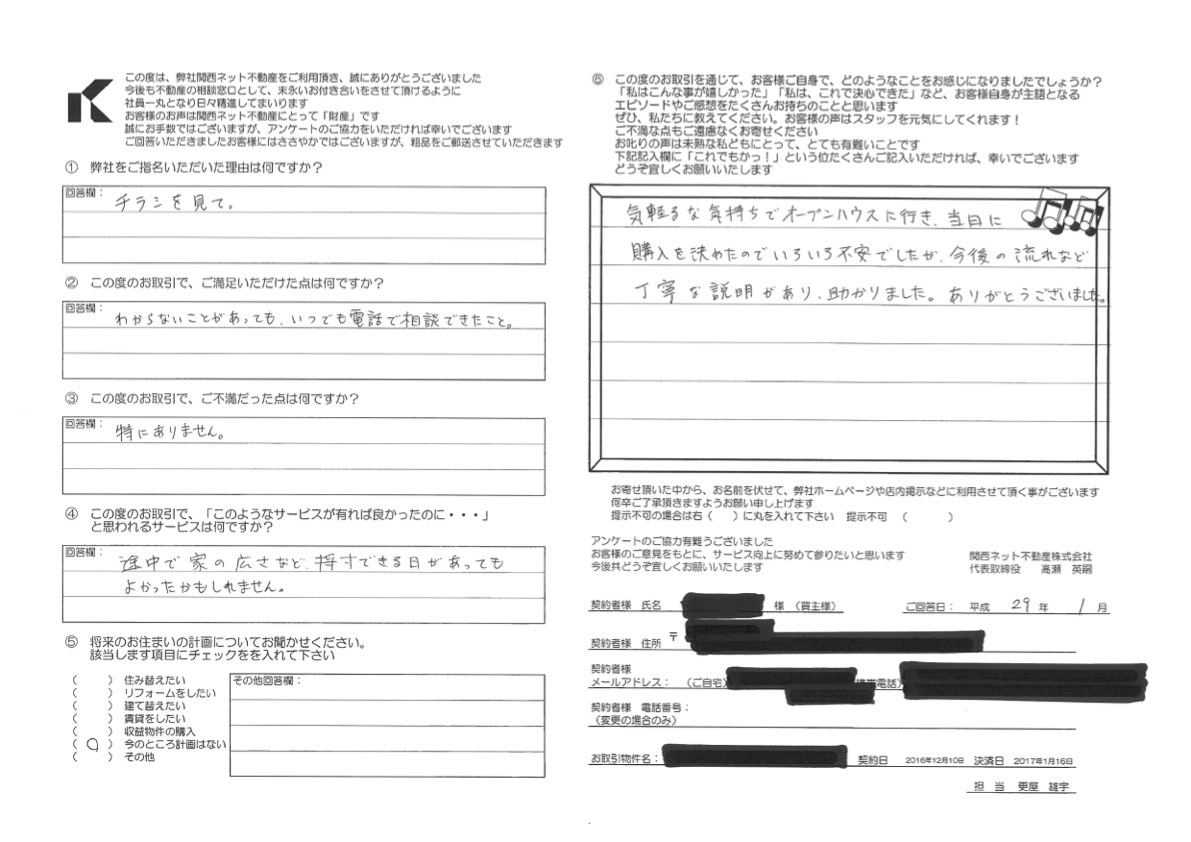 この度は、弊社関西ネット不動産をご利用頂き、誠にありがとうございました
今後も不動産の相談窓口として、末永いお付き合いをさせて頂けるように
社員一丸となり日々精進してまいります
お客様のお声は関西ネット不動産にとって「財産」です
誠にお手数ではございますが、アンケートのご協力をいただければ幸いでございます
ご回答いただきましたお客様にはささやかではございますが、粗品をご郵送させていただきます
① 弊社をご指名いただいた理由は何ですか？
回答欄：
チラシを見て。
② この度のお取引で、ご満足いただけた点は何ですか？
回答欄：
わからないことがあっても、いつでも電話で相談できたこと。
③ この度のお取引で、ご不満だった点は何ですか？
回答欄：
特にありません。
④ この度のお取引で、「このようなサービスが有れば良かったのに・・・」
と思われるサービスは何ですか？
回答欄：
途中で家の広さなど、採寸できる日があっても
よかったかもしれません。
⑤ 将来のお住まいの計画についてお聞かせください。
該当します項目にチェックをを入れて下さい
（　　） 住み替えたい
（　　） リフォームをしたい
（　　） 建て替えたい
（　　） 賃貸をしたい
（　　） 収益物件の購入
（ ○ ） 今のところ計画はない
（　　） その他
その他回答欄：
⑥ この度のお取引を通じて、お客様ご自身で、どのようなことをお感じになりましたでしょうか？
「私はこんな事が嬉しかった」「私は、これで決心できた」など、お客様自身が主語となる
エピソードやご感想をたくさんお持ちのことと思います
ぜひ、私たちに教えてください。お客様の声はスタッフを元気にしてくれます！
ご不満な点もご遠慮なくお寄せください
お叱りの声は未熟な私どもにとって、とても有難いことです
下記記入欄に「これでもかっ！」という位たくさんご記入いただければ、幸いでございます
どうぞ宜しくお願いいたします
気軽るな気持ちでオープンハウスに行き、当日に
購入を決めたのでいろいろ不安でしたが、今後の流れなど
丁寧な説明があり、助かりました。ありがとうございました。
お寄せ頂いた中から、お名前を伏せて、弊社ホームページや店内掲示などに利用させて頂く事がございます
何卒ご了承頂きますようお願い申し上げます
提示不可の場合は右（　　）に丸を入れて下さい　提示不可　（　　　）
アンケートのご協力有難うございました
お客様のご意見をもとに、サービス向上に努めて参りたいと思います
今後共どうぞ宜しくお願いいたします
関西ネット不動産株式会社
代表取締役　高瀬　英嗣
契約者様　氏名　様　（買主様）　ご回答日：　平成　29　年　1　月
契約者様　住所　〒
契約者様
メールアドレス：　（ご自宅）　携帯電話）
契約者様　電話番号：
（変更の場合のみ）
お取引物件名：　契約日　2016年12月10日　決済日　2017年1月16日
担　当　更屋　雄宇